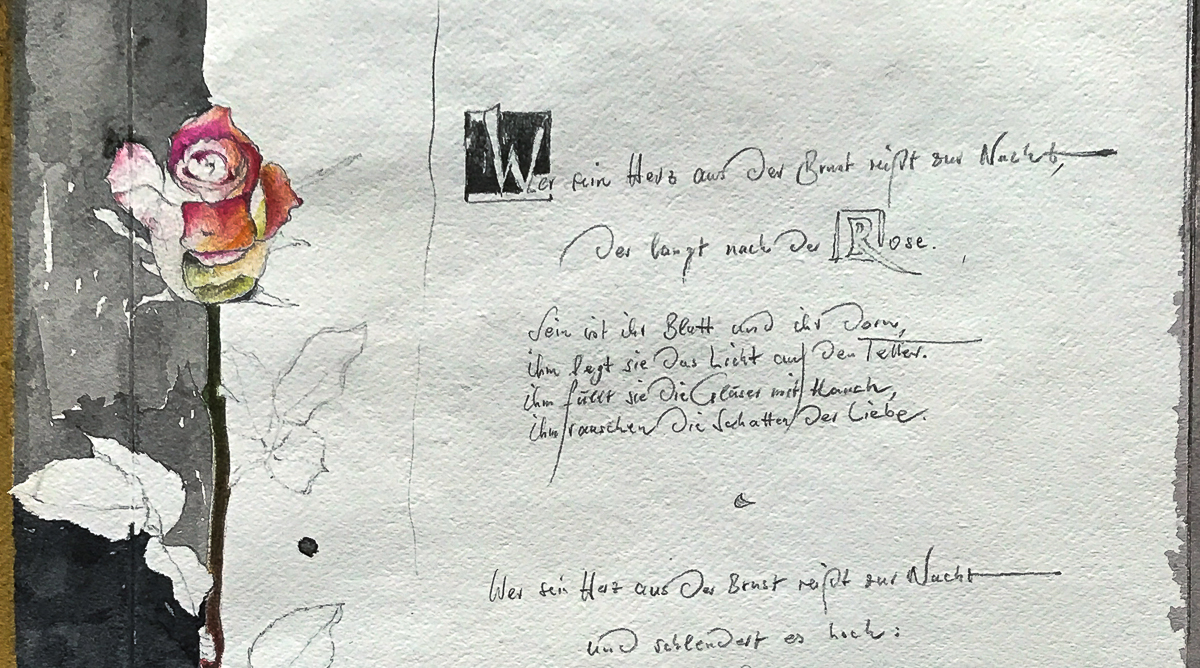 Wer sein Herz aus der Brust reißt zur Nacht,
der langt nach der Rose.
Sein ist ihr Blatt und ihr Dorn,
ihm legt sie das Licht auf den Teller.
ihm füllt sie die Gläser mit Hauch,
ihm rauschen die Schatten der Liebe.
Wer sein Herz aus der Brust reißt zur Nacht
und schleudert es hoch: